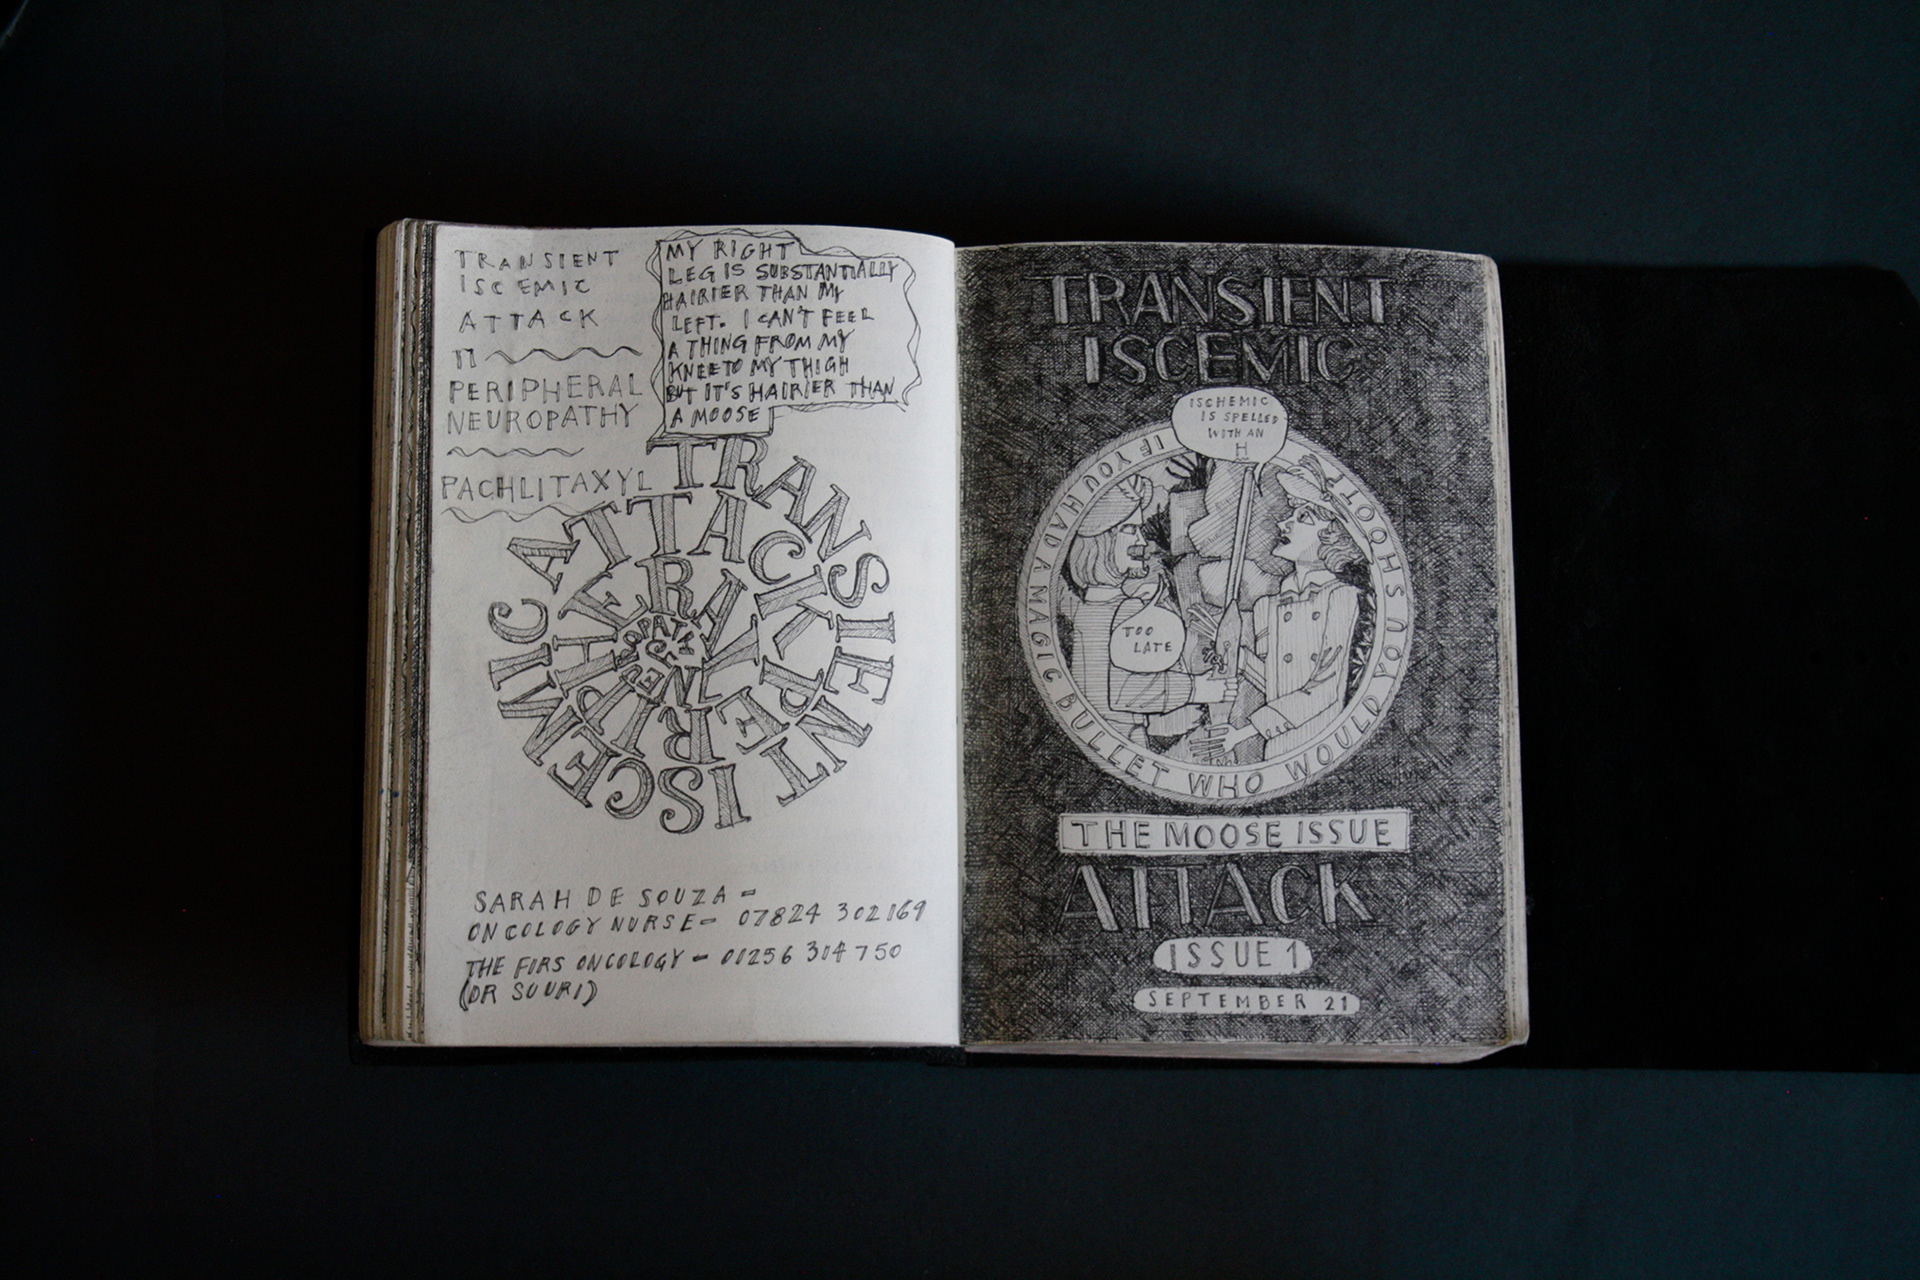 TRANSIENT
ISCEMIC
ATTACK
PERIPHERAL
NEUROPATHY
PACHLITAXYL
MY RIGHT
LEG IS SUBSTANTIALLY
HAIRIER THAN MY
LEFT. I CAN'T FEEL
A THING FROM MY
KNEE TO MY THIGH
BUT IT'S HAIRIER THAN
A MOOSE
TRANSIENT ISCEMIC ATTACK PERIPHERAL NEUROPATHY
SARAH DE SOUZA –
ONCOLOGY NURSE – 07824 302169
THE FIRS ONCOLOGY – 01256 314 750
(DR SOURI)
TRANSIENT
ISCEMIC
ISCHEMIC
IS SPELLED
WITH AN
H
IF YOU HAD A MAGIC BULLET WHO WOULD YOU SHOOT?
TOO
LATE
THE MOOSE ISSUE
ATTACK
ISSUE 1
SEPTEMBER 21